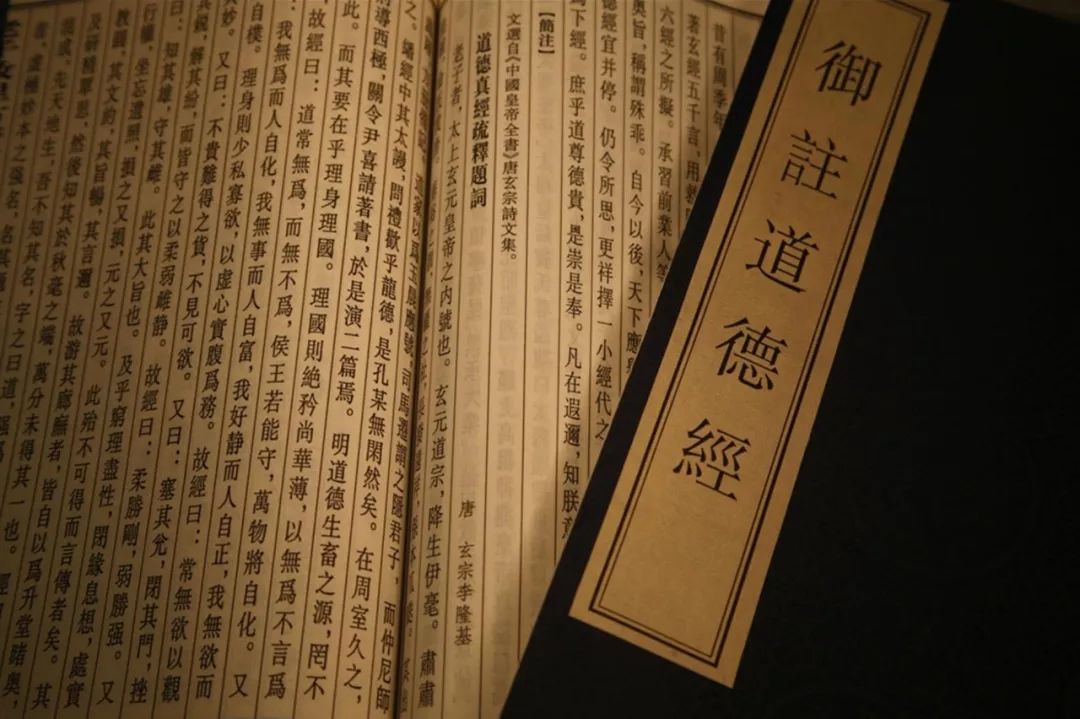 御註道德經
昔有周季年
著玄經五千言,用
六經之所擬。承習前業人等
奧旨,稱謂殊乖。自今以後,天下應
德經宜并停。仍令所思,更祥擇一小經代之
爲下經。庶乎道尊德貴,是崇是奉。凡在遐邇,知朕意
【簡注】
文選自《中國皇帝全書》唐玄宗詩文集。
道德真經疏釋題詞
唐 玄宗李隆基
老子者,太上玄元皇帝之内號也。玄元道宗,降生伊亳。肅肅
道家以爲玉晨應號,司馬遷謂之隱君子,而仲尼師
之。經中其太謾,問禮歎乎龍德,是孔某無閑然矣。在周室久之,
將導西極,關令尹喜請著書,於是演二篇焉。明道德生畜之源,罔不
此。而其要在乎理身理國。理國則絶矜尚華薄,以無爲不言爲
故經曰:道常無爲,而無不爲,侯王若能守,萬物將自化。又
我無爲而人自化,我無事而人自富,我好静而人自正,我無欲而
自樸。理身則少私寡欲,以虛心實腹爲務。故經曰:常無欲以觀
其妙。又曰:不貴難得之貨,不見可欲。又曰:塞其兑,閉其門,挫
其銳,解其紛,而皆守之以柔弱雌静。故經曰:柔勝剛,弱勝强。又
曰:知其雄,守其雌。此其大旨也。及乎窮理盡性,閉緣息想,處實
行權,坐忘遺照,損之又損,元之又元。此殆不可得而言傳者矣。其
教圓,其文約,其旨暢,其言邇。故游其廊廡者,皆自以爲升堂睹奥,
及研精覃思,然後知其於秋毫之端,萬分未得其一也。
混成,先天地生,吾不知其名,字之曰道,强爲
虛極妙本之强名,名其